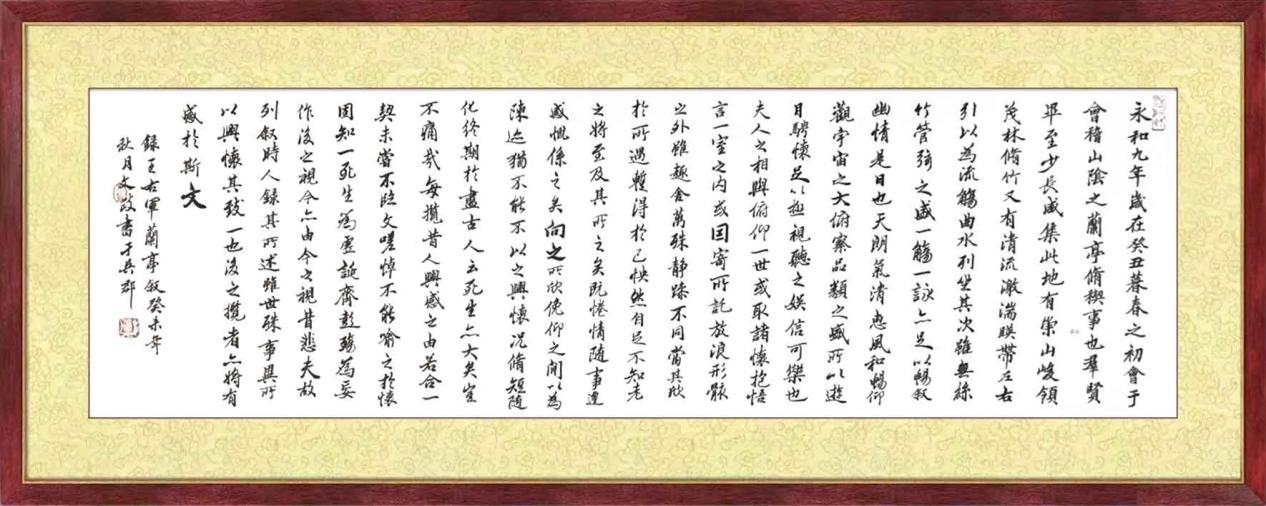 永和九年歲在癸丑暮春之初會于
會稽山陰之蘭亭脩禊事也羣賢
畢至少長咸集此地有崇山峻領
茂林脩竹又有清流激湍暎帶左右
引以為流觴曲水列坐其次雖無絲
竹管弦之盛一觴一詠亦足以暢敘
幽情是日也天朗氣清惠風和暢仰
觀宇宙之大俯察品類之盛所以遊
目騁懷足以極視聽之娛信可樂也
夫人之相與俯仰一世或取諸懷抱悟
言一室之內或因寄所託放浪形骸
之外雖趣舍萬殊靜躁不同當其欣
於所遇暫得於己怏然自足不知老
之將至及其所之既惓情隨事遷
感慨係之矣向之所欣俛仰之間以為
陳迹猶不能不以之興懷況脩短隨
化終期於盡古人云死生亦大矣豈
不痛哉每攬昔人興感之由若合一
契未嘗不臨文嗟悼不能喻之於懷
固知一死生為虛誕齊彭殤為妄
作後之視今亦由今之視昔悲夫故
列敘時人錄其所述雖世殊事異所
以興懷其致一也後之攬者亦將有
感於斯文
錄王右軍蘭亭敘癸未年
秋月文波書于吳郡